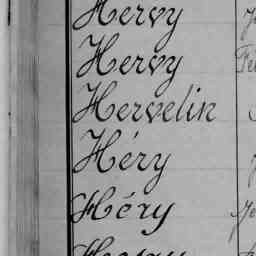 Hervy
Hervy
Hervelin
Héry
Héry